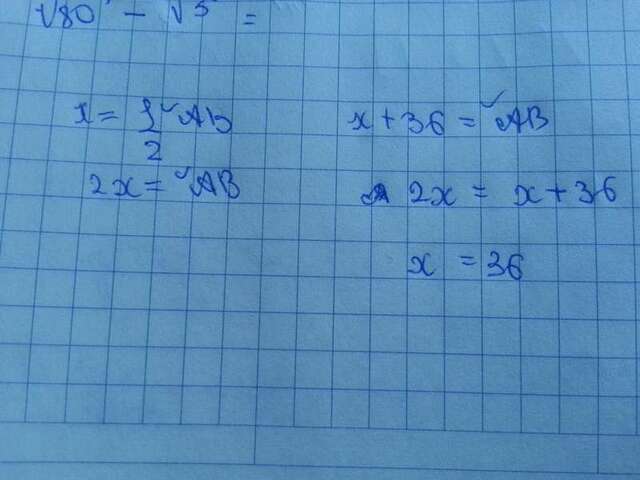 √80 - √5 =
x = 1/2 ˘AB
2x = ˘AB
x + 36 = ˘AB
2x = x + 36
x = 36